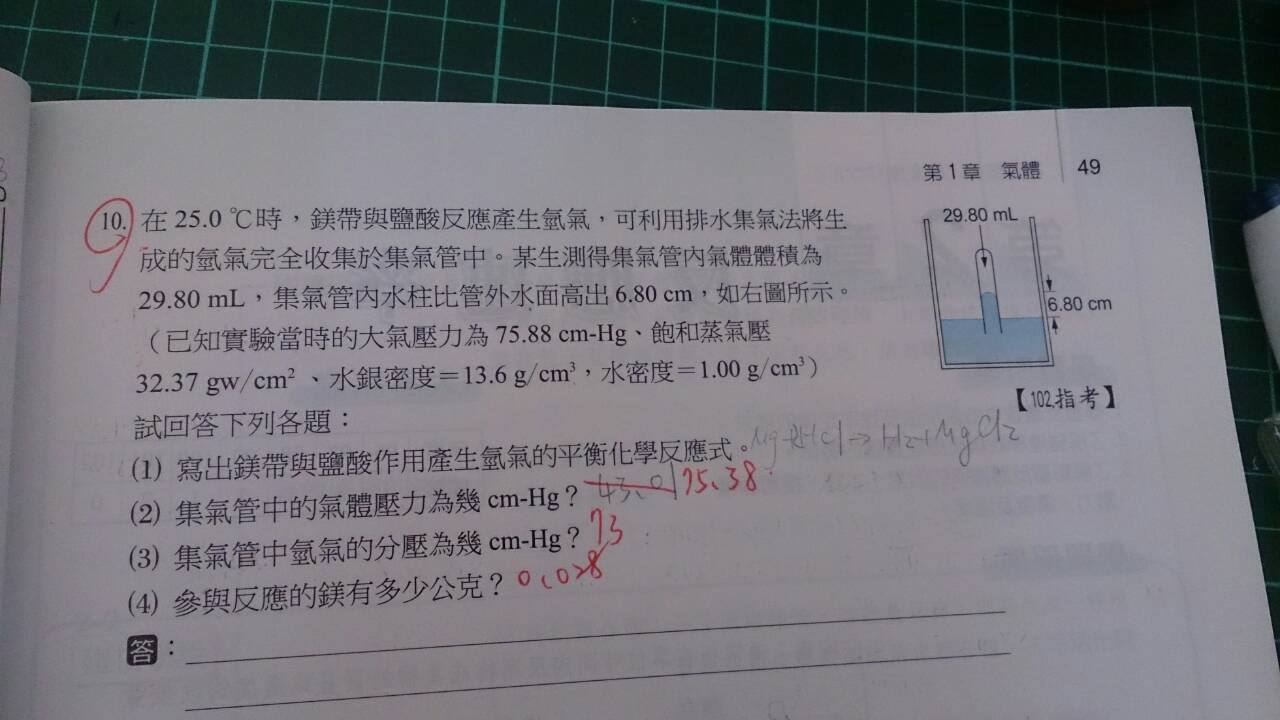 第1章 氣體 49
10. 在 25.0 ℃時，鎂帶與鹽酸反應產生氫氣，可利用排水集氣法將生
成的氫氣完全收集於集氣管中。某生測得集氣管內氣體體積為
29.80 mL，集氣管內水柱比管外水面高出 6.80 cm，如右圖所示。
（已知實驗當時的大氣壓力為 75.88 cm-Hg、飽和蒸氣壓
32.37 gw/cm²、水銀密度＝13.6 g/cm³，水密度＝1.00 g/cm³）
29.80 mL
6.80 cm
【102.指考】
試回答下列各題：
(1) 寫出鎂帶與鹽酸作用產生氫氣的平衡化學反應式。 → H2+MgCl2
(2) 集氣管中的氣體壓力為幾 cm-Hg？ 43.01 75.38
(3) 集氣管中氫氣的分壓為幾 cm-Hg？ 73
(4) 參與反應的鎂有多少公克？ 0.028
答：